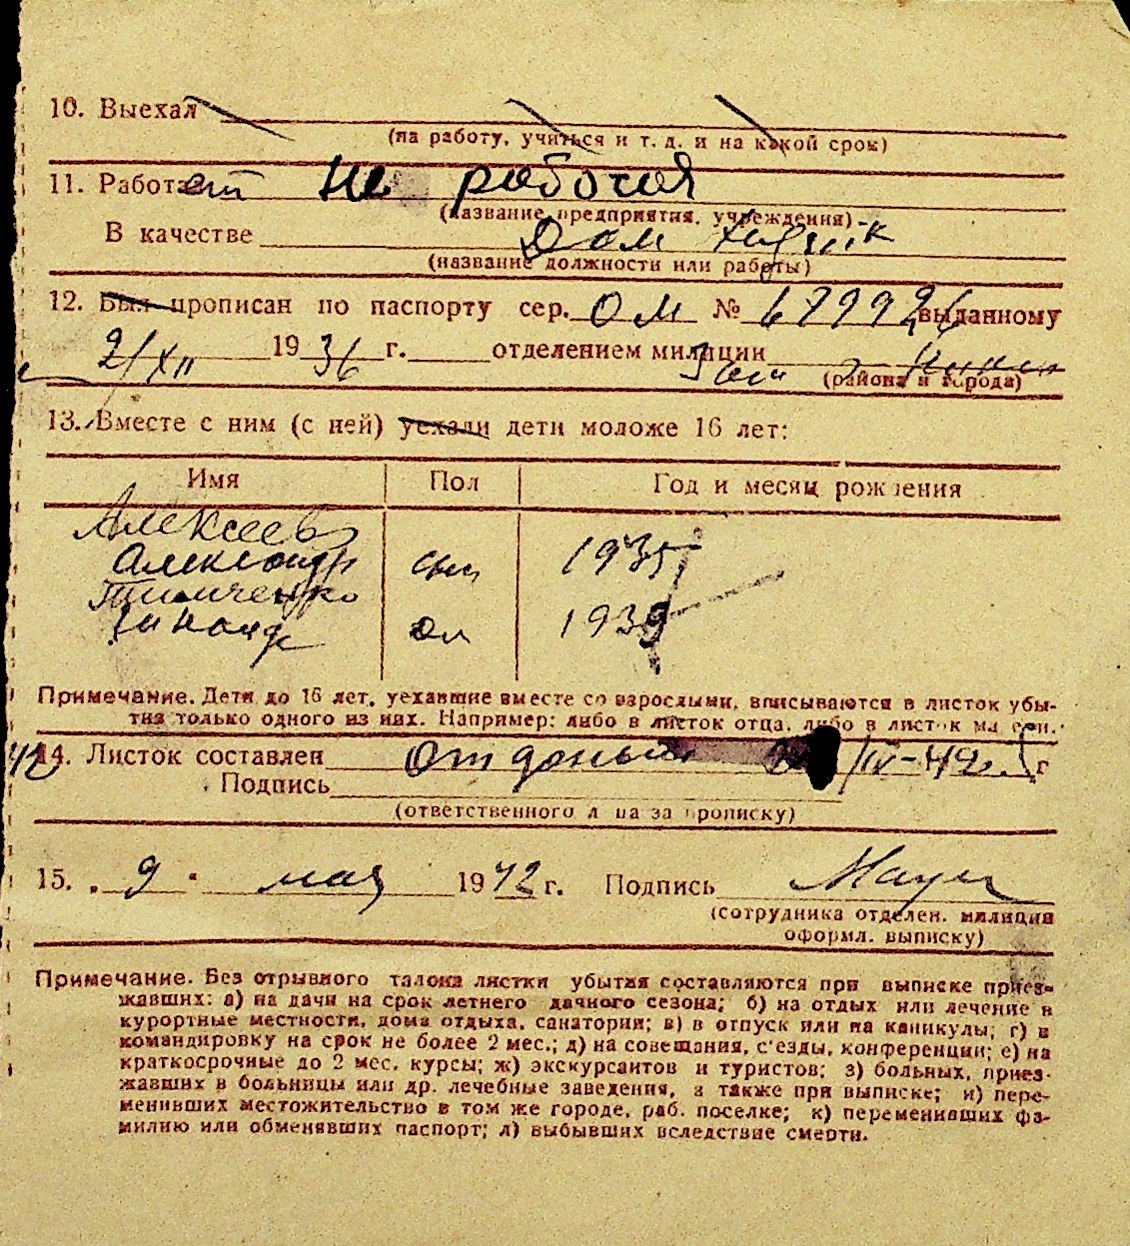 10. Выехал
(на работу, учиться и т. д. и на какой срок)
11. Работает не рабочая
(название предприятия, учреждения)
В качестве Дом
(название должности или работы)
12. Был прописан по паспорту сер. ОМ № выданному
21/XII 1936 г. отделением милиции
(района и города)
13. Вместе с ним (с ней) уехали дети моложе 16 лет:
Имя Пол Год и месяц рождения
Алексеев
Александр сын 1935
Тимченко
Зинаида 1939
Примечание. Дети до 16 лет, уехавшие вместе со взрослыми, вписываются в листок убы-
тия только одного из них. Например: либо в листок отца, либо в листок матери.
14. Листок составлен /IV-42 г
Подпись
(ответственного лица за прописку)
15. „ 9 “ мая 1942 г. Подпись
(сотрудника отделен. милиции
оформл. выписку)
Примечание. Без отрывного талона листки убытия составляются при выписке приез-
жавших: а) на дачи на срок летнего дачного сезона; б) на отдых или лечение в
курортные местности, дома отдыха, санатории; в) в отпуск или на каникулы; г) в
командировку на срок не более 2 мес.; д) на совещания, с'езды, конференции; е) на
краткосрочные до 2 мес. курсы; ж) экскурсантов и туристов; з) больных, приез-
жавших в больницы или др. лечебные заведения, а также при выписке; и) пере-
менивших местожительство в том же городе, раб. поселке; к) переменивших фа-
милию или обменявших паспорт; л) выбывших вследствие смерти.